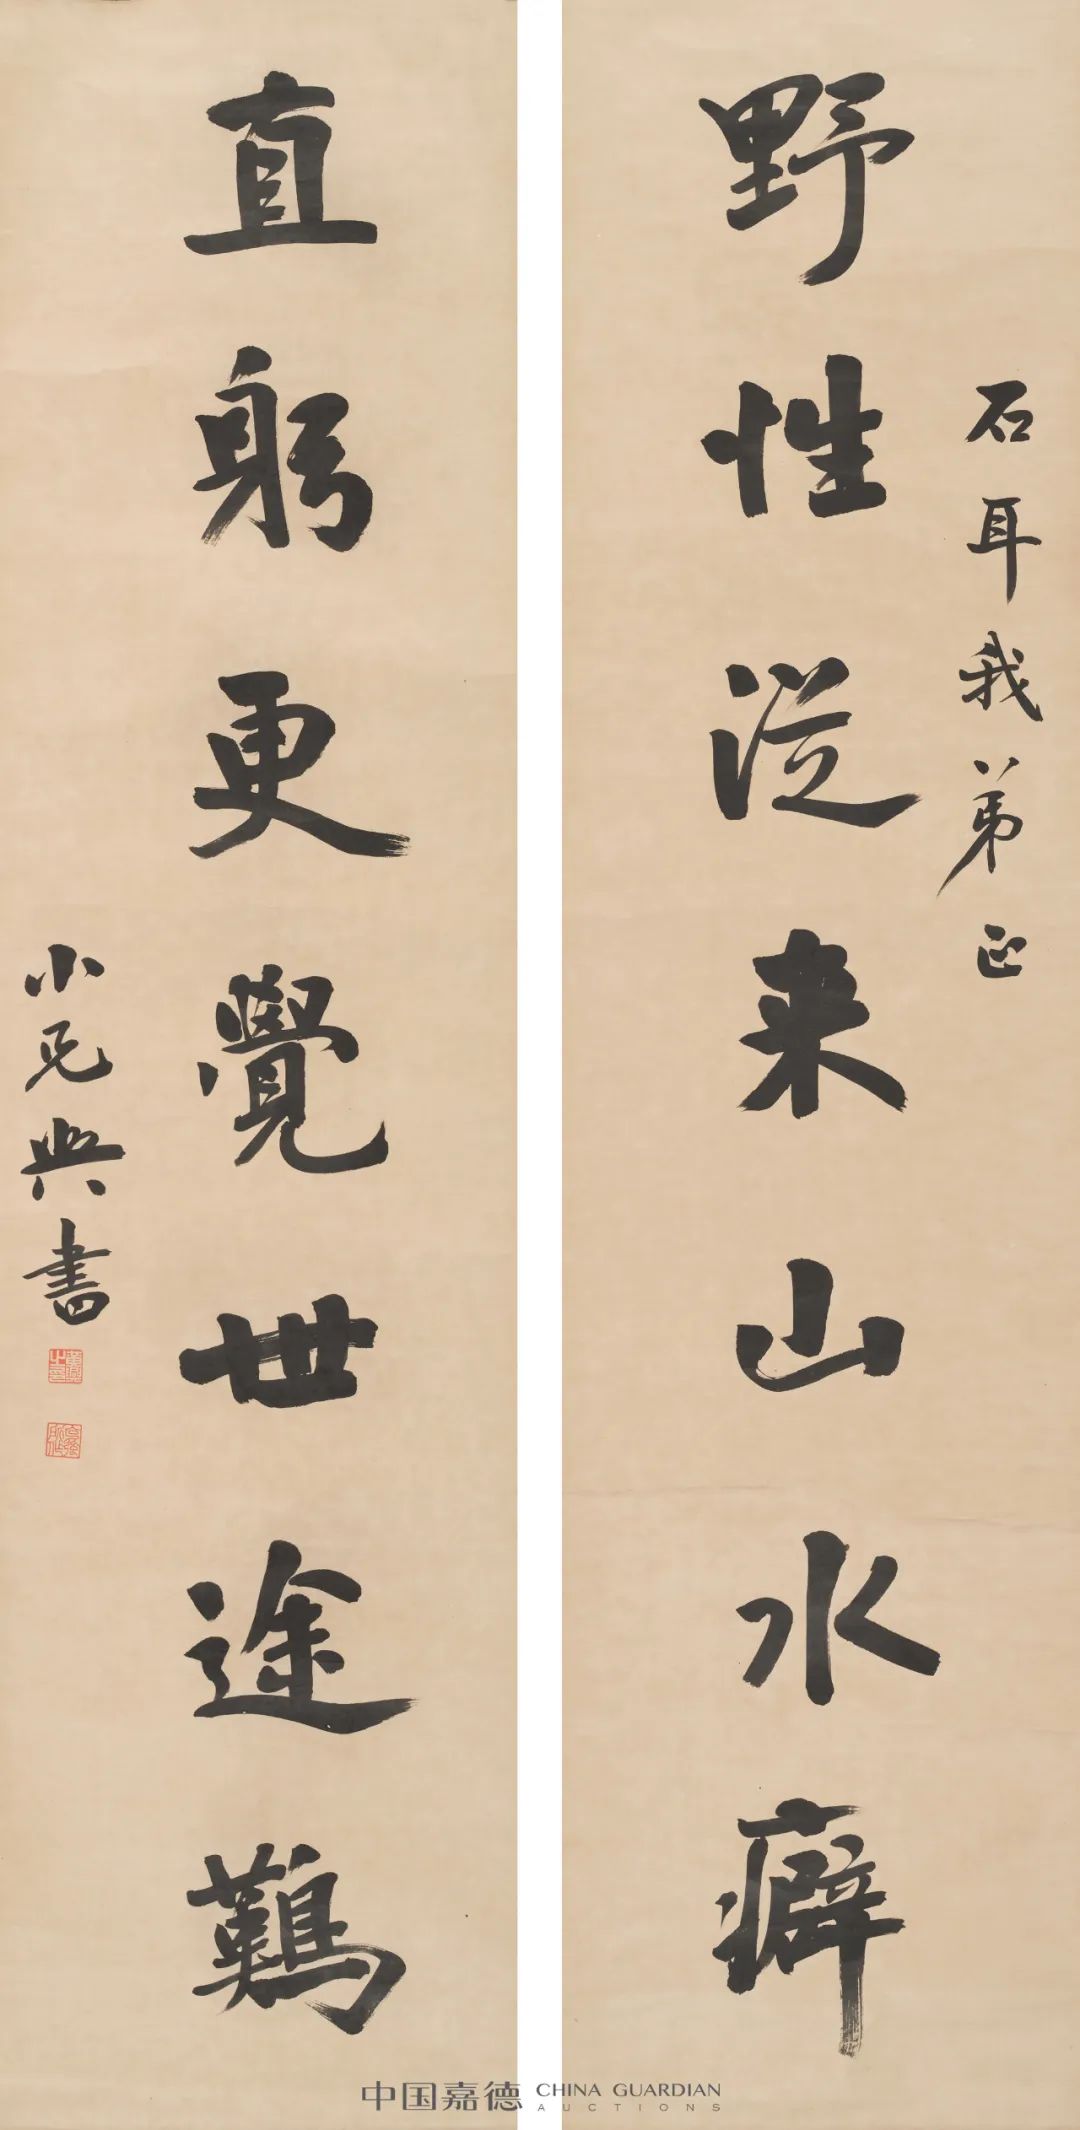 石耳我弟正
野性從来山水癖
直躬更覺世途難
小兄興書
中国嘉德 CHINA GUARDIAN
AUCTIONS